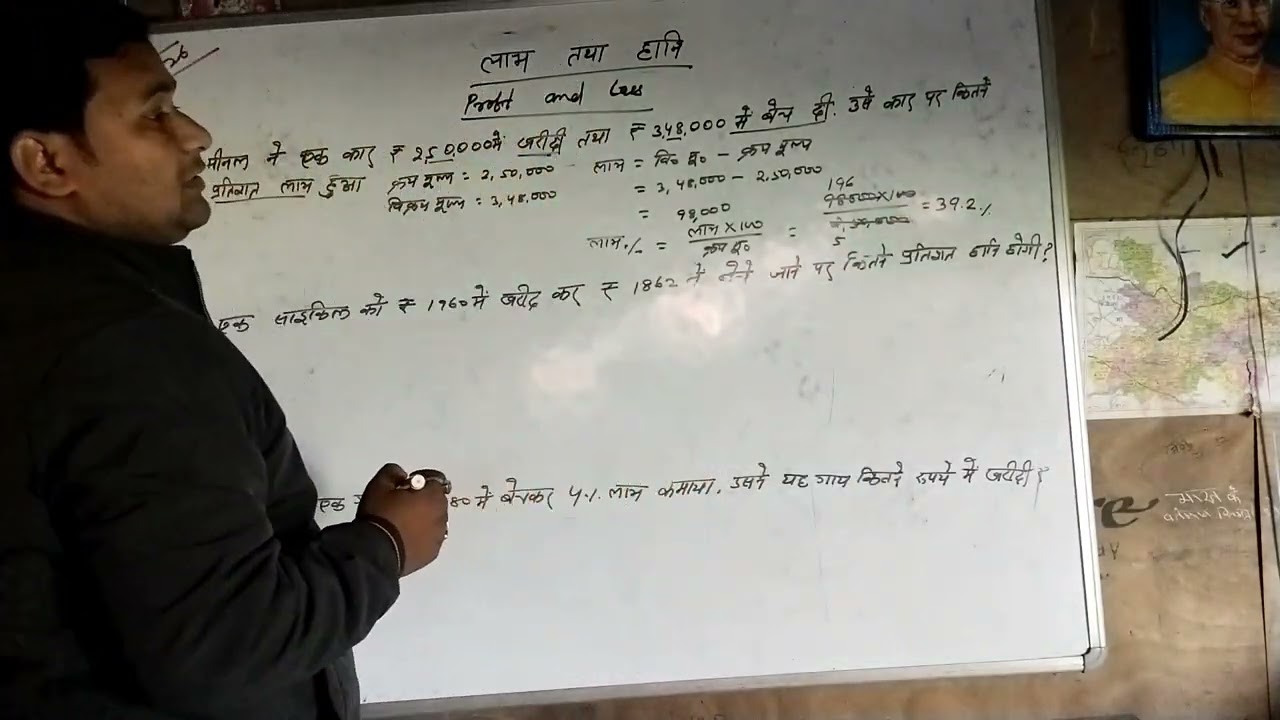 लाभ तथा हानि
Profit and Loss
मीनल ने एक कार ₹ 250,000 में खरीदी तथा ₹ 348,000 में बेच दी. उसे कार पर कितने
प्रतिशत लाभ हुआ
क्रय मूल्य = 2,50,000
विक्रय मूल्य = 3,48,000
लाभ = वि० मू० - क्रय मूल्य
= 3,48,000 - 2,50,000
= 98,000
लाभ% = लाभ X 100 / क्रय मू० = 98000 X 100 / 2,50,000 = 39.2%
196
5
एक साइकिल को ₹ 1960 में खरीद कर ₹ 1862 में बेचे जाने पर कितने प्रतिशत हानि होगी?
एक 80 में बेचकर 4% लाभ कमाया. उसने यह गाय कितने रुपये में खरीदी?